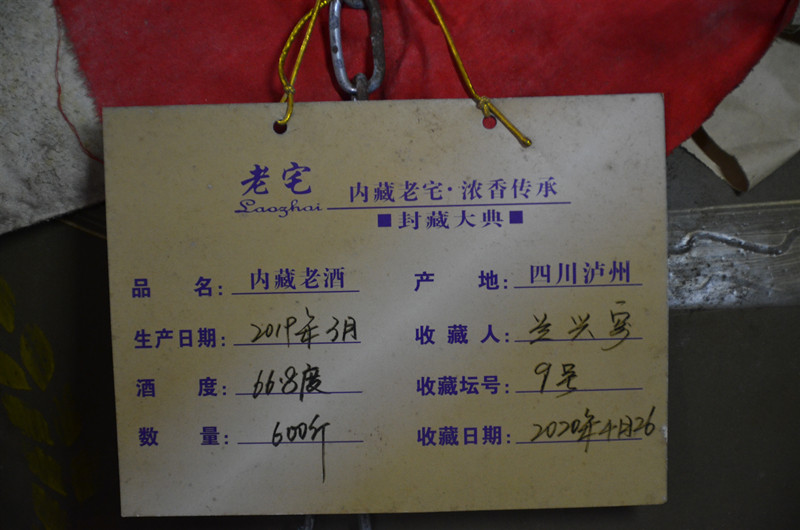 老宅
Laozhai
内藏老宅·浓香传承
■封藏大典■
品 名：内藏老酒 产 地：四川泸州
生产日期：2019年3月 收藏人：兰兴
酒 度：66.8度 收藏坛号：9号
数 量：600斤 收藏日期：2020年4月26